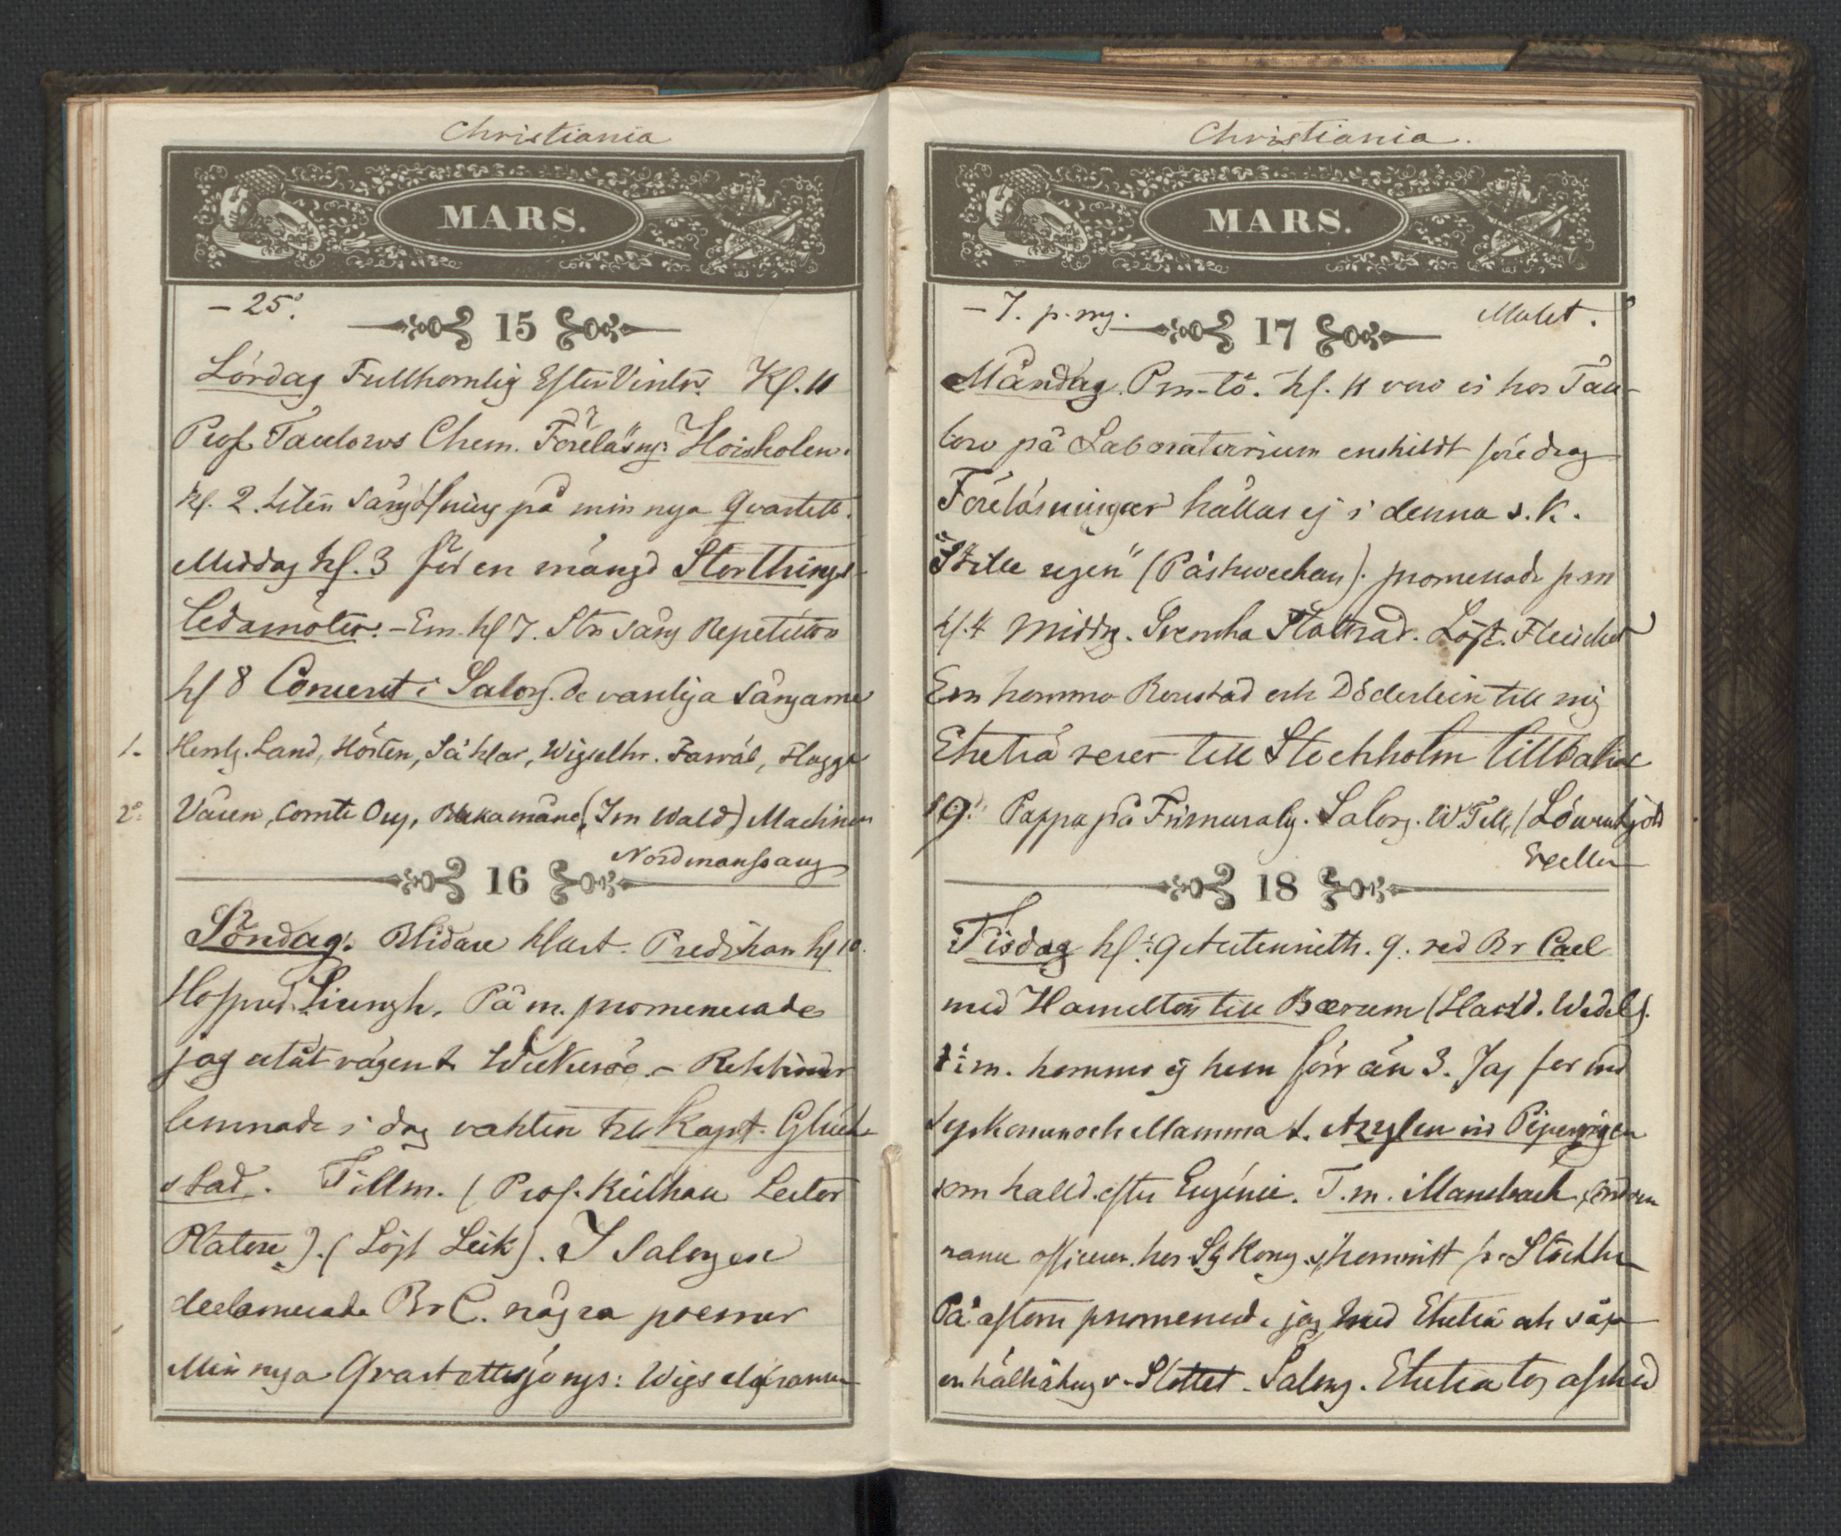 Christiania
MARS.
- 25°.
15
Lördag Fullkomlig Efter Vinter. Kl. 11
Prof. Taulows Chem. Föreläsng: Höiskolen.
kl. 2. liten sångöfning på min nya Qvartett.
Middag kl. 3 för en mängd Storthings-
ledamöter. - Em. kl 7. Stor sång Repetition
kl 8 Concert i Salong. de vanliga sångarne
1. Herrlig. Land, Hösten, Såklar, Wigselhr. Farväl, Flagge
2°. Våren, Comte Ory, (Im Wald) Machinen
Nordmanssang
16
Söndag. Blidare klart. Predikan kl 10.
Hofpred. Liungh. På m. promenerade
jag utåt vägen t.
lemnade i dag vakten till Kapt. Glück-
stad. Till m. (Prof. Keilhau Lector
). (Löjt Leik). I salongen
declamerade Br C. några poemer
Min nya Qvartettsjöngs: Wigselgranen
Christiania.
MARS.
- 7. p. mg. Mulet.
17
Måndag. Pm - tö. kl. 11 voro vi hos Tau-
low på Laboratorium enskildt föredrag
Föreläsningar hållas ej i denna s. k.
"Stille ugen" (Påskveckan). promenade p m
kl. 4 Midдg. Svenska Statsråd. Löjt. Fleischer
Em kommo Benstad och Döderlein till mig
Eketrä reser till Stockholm tillbaka
19. Pappa på Frimuralg. Salong. W. Tell, (Löwenskjöld
Exellen
18
Tisdag kl. 9 Autenrieth. 9. red Br Carl
med Hamilton till Bærum (Harld. Wedels).
t: m. kommer ej hem förr än 3. Jag for med
Syskonen och Mamma t. Azylen vid Pipervigen
som kalld. efter Eugénie. T. m. Mansbach,
officerer. hos Sg Kong. s/kommitt fr. Stockhm
På aftonen promenerade jag med Eketrä och såg
en kälkåkng v. Slottet - Salong. Eketrä tog afsked